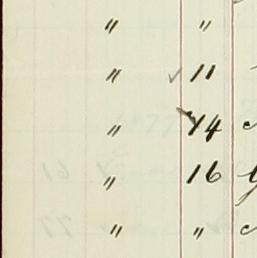 " "
" ✓ 11
" 14
" 16
" "